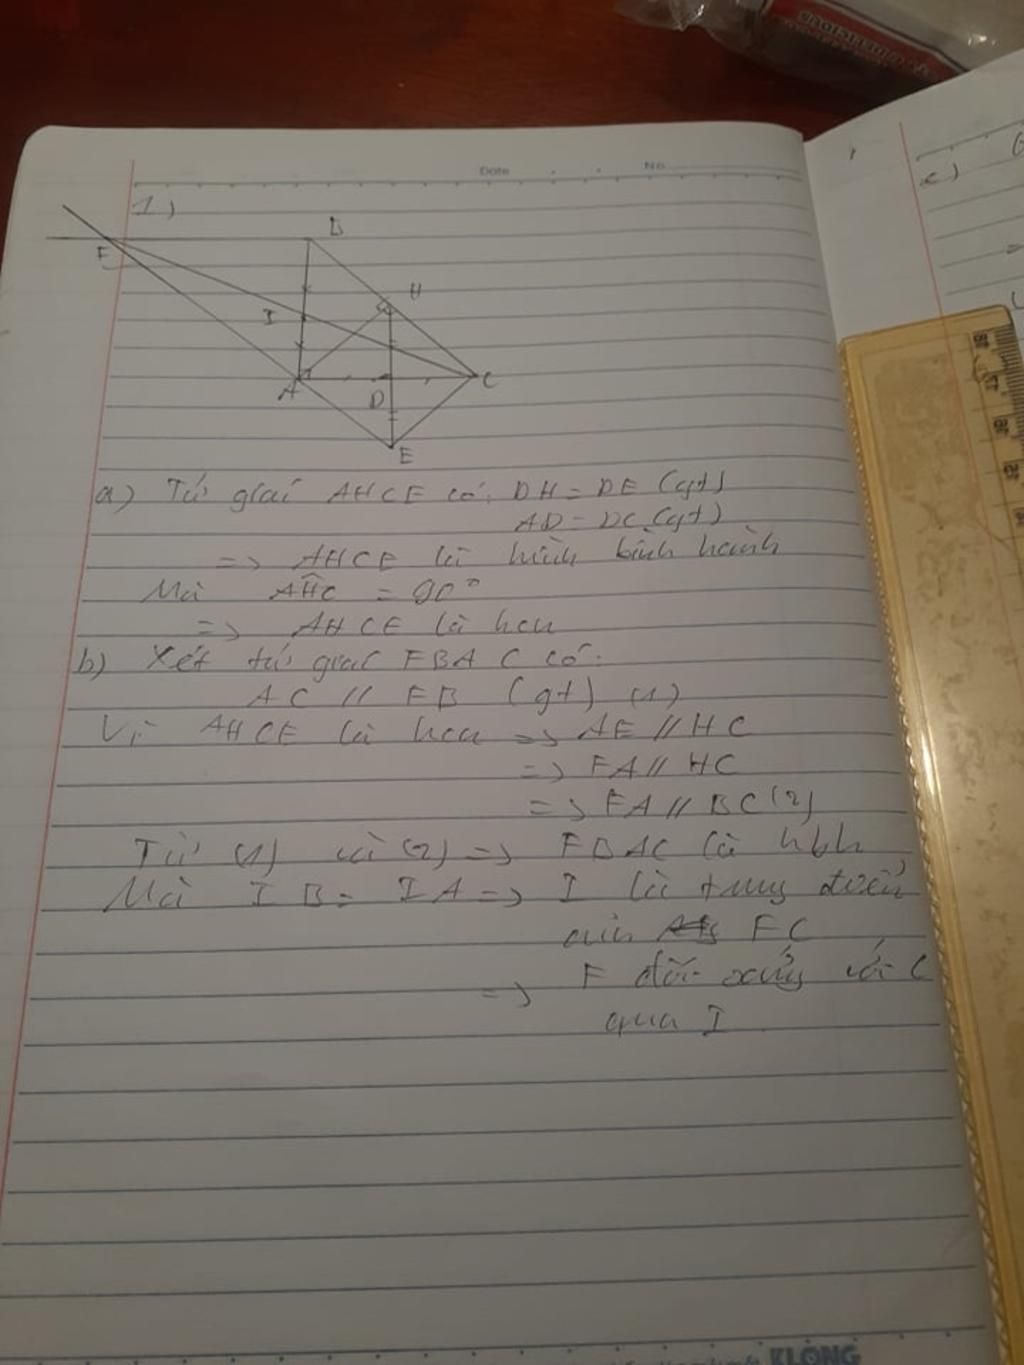 Date No.
1)
B
F
H
I
A
D
C
E
a) Tứ giác AHCE có: DH = DE (gt)
AD = DC (gt)
=> AHCE là hình bình hành
Mà AHC = 90°
=> AHCE là hcn
b) Xét tứ giác FBAC có:
AC // FB (gt) (1)
Vì AHCE là hcn => AE // HC
=> FA // HC
=> FA // BC (2)
Từ (1) và (2) => FBAC là hbh
Mà IB = IA => I là trung điểm
của FC
=> F đối xứng với C
qua I
c)
KLONG